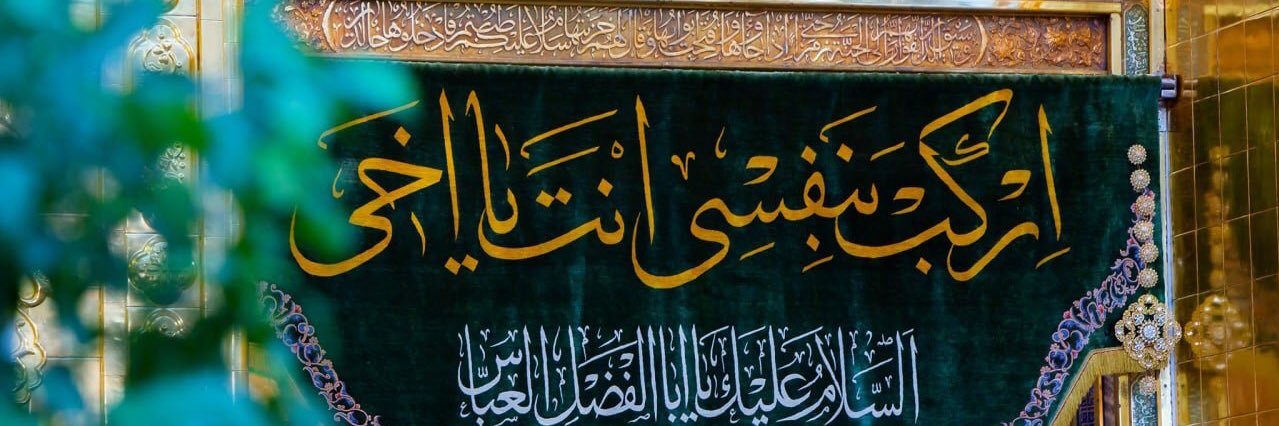 وسيق الذين اتقوا ربهم إلى الجنة زمرا حتى إذا جاؤوها وفتحت أبوابها وقال لهم خزنتها سلام عليكم طبتم فادخلوها خالدين
اِركَب بِنَفسِي اَنتَ يا اَخي
اَلسَّلامُ عَلَيكَ يا اَبَا الفَضلِ العَبّاس